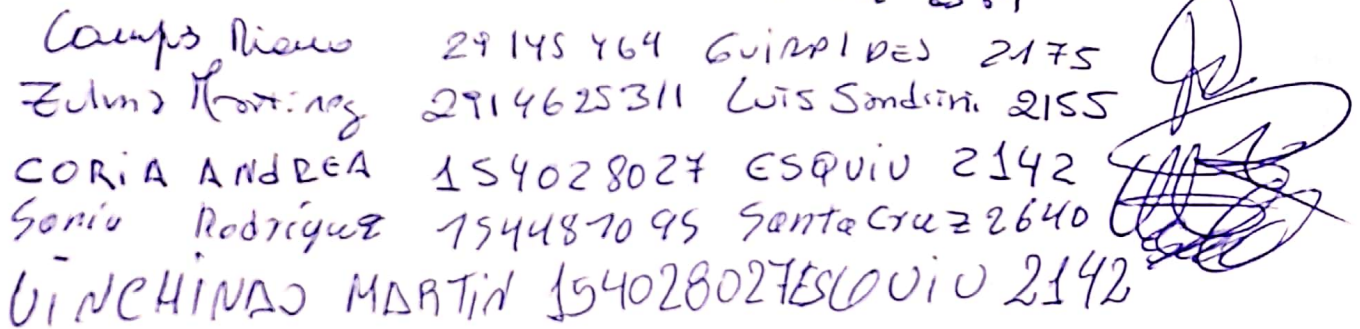 Campos 29145464 GUIRALDES 2175
Zulma Martinez 2914625311 Luis Sandrini 2155
CORIA ANDREA 154028027 ESQUIU 2142
Sonia Rodriguez 154481095 Santa Cruz 2640
VINCHINAO MARTIN 154028027 ESQUIU 2142